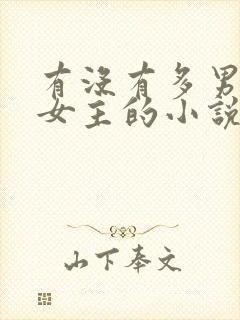 有没有多男
女主的小説
山下奉文